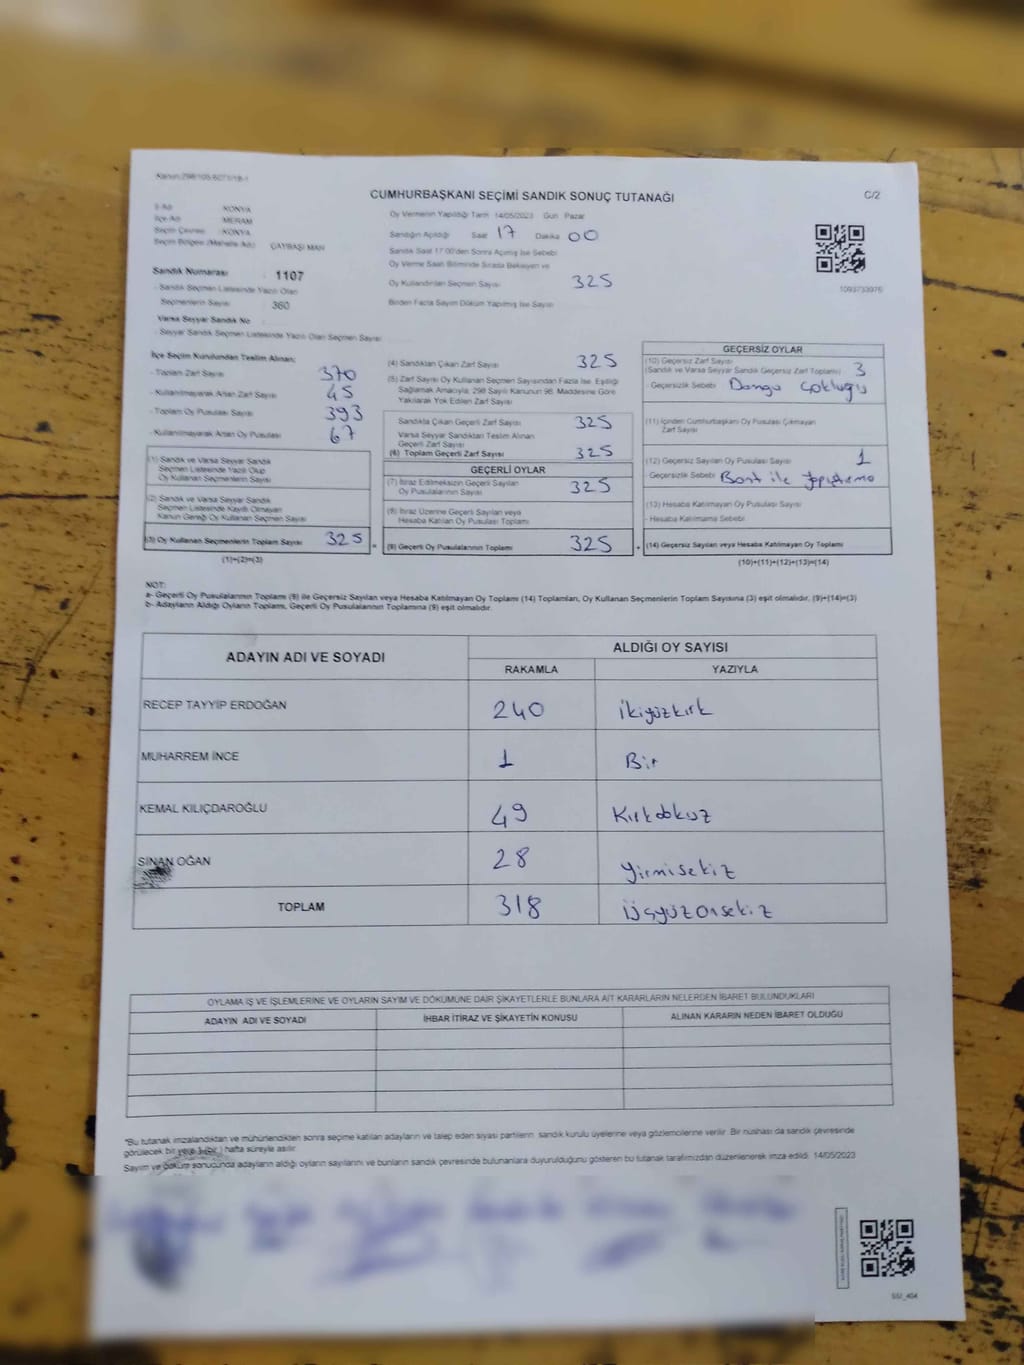 CUMHURBAŞKANI SEÇİMİ SANDIK SONUÇ TUTANAĞI
C/2
İl Adı : KONYA
İlçe Adı : MERAM
Seçim Çevresi : KONYA
Seçim Bölgesi (Mahalle Adı) : ÇAYBAŞI MAH
Sandık Numarası : 1107
- Sandık Seçmen Listesinde Yazılı Olan
Seçmenlerin Sayısı : 360
Varsa Seyyar Sandık No
- Seyyar Sandık Seçmen Listesinde Yazılı Olan Seçmen Sayısı :
Oy Vermenin Yapıldığı Tarih 14/05/2023 Gün Pazar
Sandığın Açıldığı Saat 17 Dakika 00
Sandık Saat 17:00'den Sonra Açılmış İse Sebebi
Oy Verme Saati Bitiminde Sırada Bekleyen ve
Oy Kullandırılan Seçmen Sayısı 325
Birden Fazla Sayım Döküm Yapılmış İse Sayısı
1093733976
İlçe Seçim Kurulundan Teslim Alınan;
- Toplam Zarf Sayısı 370
- Kullanılmayarak Artan Zarf Sayısı 45
- Toplam Oy Pusulası Sayısı 393
- Kullanılmayarak Artan Oy Pusulası 67
(1) Sandık ve Varsa Seyyar Sandık
Seçmen Listesinde Yazılı Olup
Oy Kullanan Seçmenlerin Sayısı
(2) Sandık ve Varsa Seyyar Sandık
Seçmen Listesinde Kayıtlı Olmayan
Kanun Gereği Oy Kullanan Seçmen Sayısı
(3) Oy Kullanan Seçmenlerin Toplam Sayısı 325 =
(1)+(2)=(3)
(4) Sandıktan Çıkan Zarf Sayısı 325
(5) Zarf Sayısı Oy Kullanan Seçmen Sayısından Fazla İse, Eşitliği
Sağlamak Amacıyla; 298 Sayılı Kanunun 98. Maddesine Göre
Yakılarak Yok Edilen Zarf Sayısı
Sandıkta Çıkan Geçerli Zarf Sayısı 325
Varsa Seyyar Sandıktan Teslim Alınan
Geçerli Zarf Sayısı
(6) Toplam Geçerli Zarf Sayısı 325
GEÇERLİ OYLAR
(7) İtiraz Edilmeksizin Geçerli Sayılan
Oy Pusulalarının Sayısı 325
(8) İtiraz Üzerine Geçerli Sayılan veya
Hesaba Katılan Oy Pusulası Toplamı
(9) Geçerli Oy Pusulalarının Toplamı 325 +
GEÇERSİZ OYLAR
(10) Geçersiz Zarf Sayısı
(Sandık ve Varsa Seyyar Sandık Geçersiz Zarf Toplamı) 3
- Geçersizlik Sebebi Damga çokluğu
(11) İçinden Cumhurbaşkanı Oy Pusulası Çıkmayan
Zarf Sayısı
(12) Geçersiz Sayılan Oy Pusulası Sayısı 1
Geçersizlik Sebebi Bant ile yapıştırma
(13) Hesaba Katılmayan Oy Pusulası Sayısı
- Hesaba Katılmama Sebebi
(14) Geçersiz Sayılan veya Hesaba Katılmayan Oy Toplamı
(10)+(11)+(12)+(13)=(14)
NOT:
a- Geçerli Oy Pusulalarının Toplamı (9) ile Geçersiz Sayılan veya Hesaba Katılmayan Oy Toplamı (14) Toplamları, Oy Kullanan Seçmenlerin Toplam Sayısına (3) eşit olmalıdır, (9)+(14)=(3)
b- Adayların Aldığı Oyların Toplamı, Geçerli Oy Pusulalarının Toplamına (9) eşit olmalıdır.
ADAYIN ADI VE SOYADI
ALDIĞI OY SAYISI
RAKAMLA YAZIYLA
RECEP TAYYİP ERDOĞAN 240 ikiyüzkırk
MUHARREM İNCE 1 Bir
KEMAL KILIÇDAROĞLU 49 Kırkdokuz
SİNAN OĞAN 28 yirmisekiz
TOPLAM 318 üçyüzonsekiz
OYLAMA İŞ VE İŞLEMLERİNE VE OYLARIN SAYIM VE DÖKÜMÜNE DAİR ŞİKAYETLERLE BUNLARA AİT KARARLARIN NELERDEN İBARET BULUNDUKLARI
ADAYIN ADI VE SOYADI İHBAR İTİRAZ VE ŞİKAYETİN KONUSU ALINAN KARARIN NEDEN İBARET OLDUĞU
*Bu tutanak imzalandıktan ve mühürlendikten sonra seçime katılan adayların ve talep eden siyasi partilerin, sandık kurulu üyelerine veya gözlemcilerine verilir. Bir nüshası da sandık çevresinde
görülecek bir yere bir(1) hafta süreyle asılır.
Sayım ve döküm sonucunda adayların aldığı oyların sayılarını ve bunların sandık çevresinde bulunanlara duyurulduğunu gösteren bu tutanak tarafımızdan düzenlenerek imza edildi. 14/05/2023